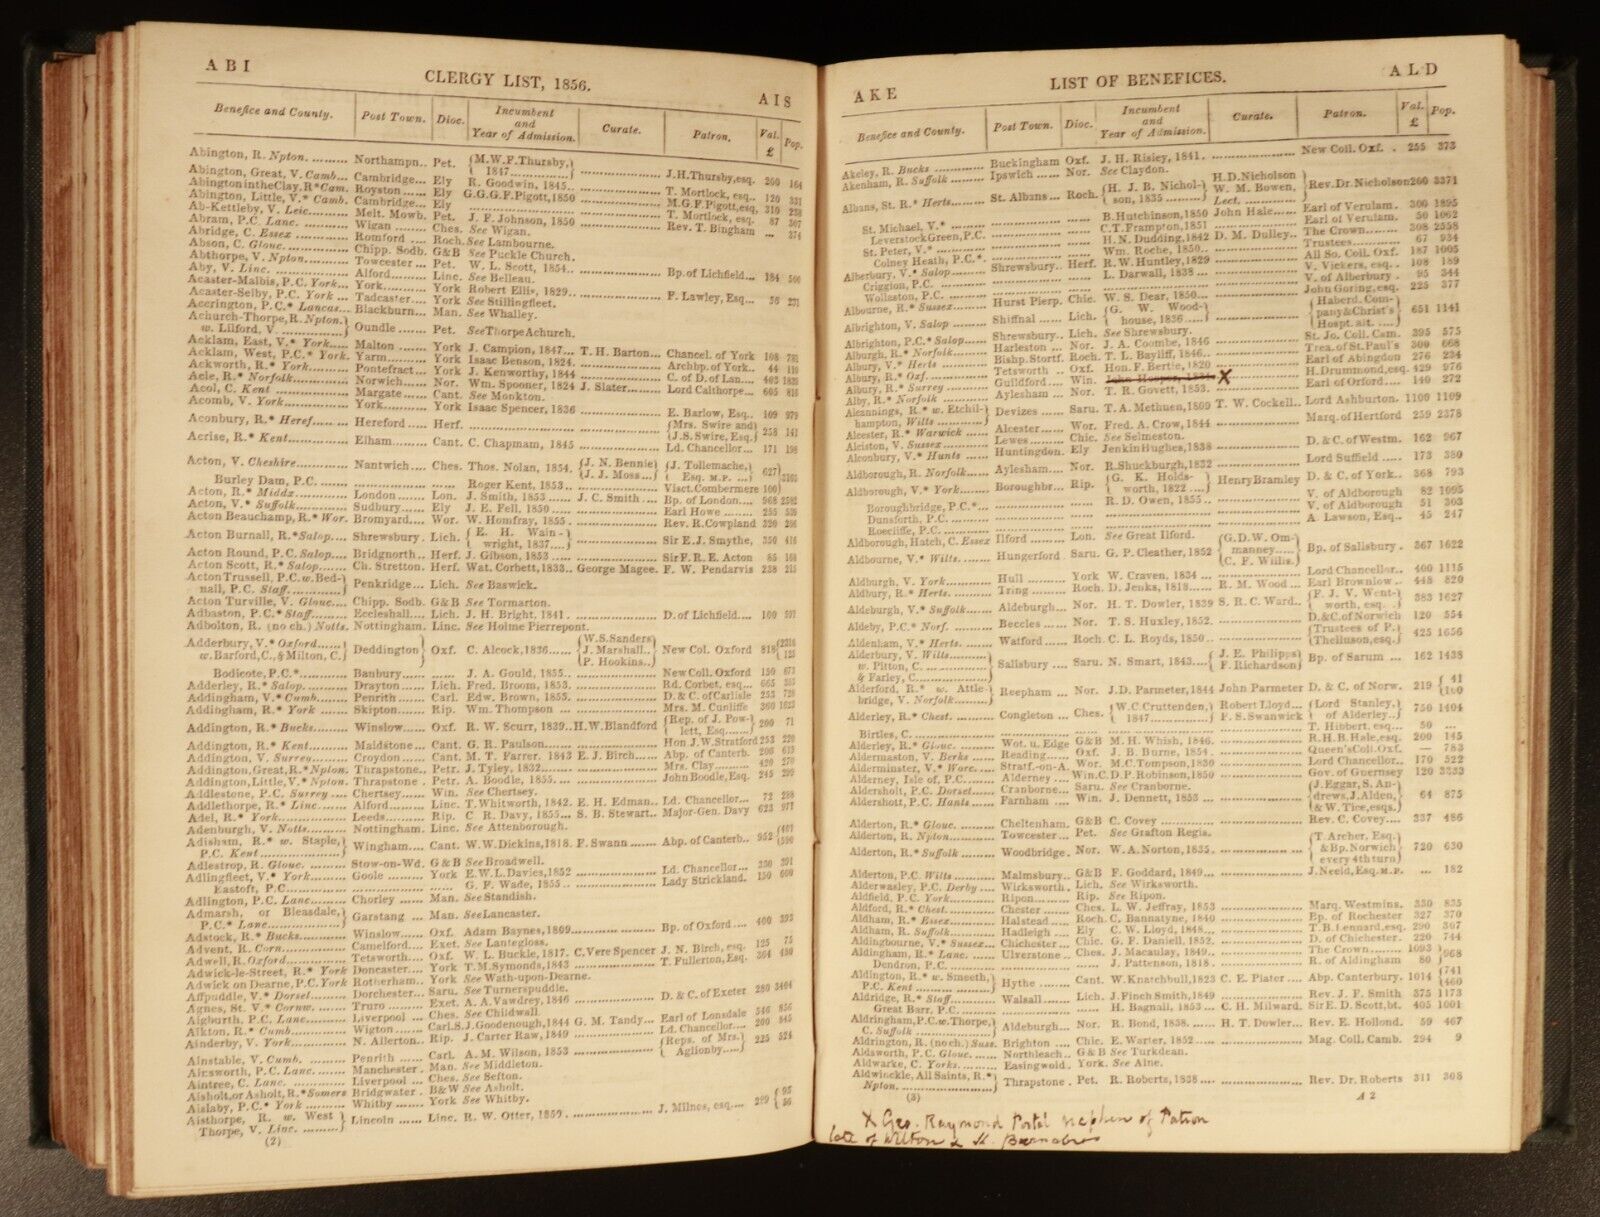 ABI
CLERGY LIST, 1856.
AIS
Benefice and County. Post Town. Dioc. Incumbent and Year of Admission. Curate. Patron. Val. £ Pop.
Abington, R. Npton. .......... Northampn.. Pet. {M.W.F.Thursby,} 1847 J.H.Thursby,esq. 260 164
Abington, Great, V. Camb... Cambridge... Ely R. Goodwin, 1845.. T. Mortlock, esq.. 120 331
Abington in the Clay, R.* Cam. Royston ...... Ely G.G.G.F.Pigott,1850 M.G.F.Pigott,esq. 310 238
Abington, Little, V.* Camb. Cambridge... Ely T. Mortlock, esq. 87 307
Ab-Kettleby, V. Leic......... Melt. Mowb. Pet. J. F. Johnson, 1850 Rev. T. Bingham ... 374
Abram, P.C. Lanc. ........... Wigan ....... Ches. See Wigan.
Abridge, C. Essex ........... Romford .... Roch. See Lambourne.
Abson, C. Glouc. ............ Chipp. Sodb. G&B See Puckle Church.
Abthorpe, V. Npton.......... Towcester ... Pet. W. L. Scott, 1854.. Bp. of Lichfield... 184
Aby, V. Linc. ............... Alford........ Linc. See Belleau.
Acaster-Malbis, P.C. York... York.......... York Robert Ellis, 1829.. F. Lawley, Esq... 56 231
Acaster-Selby, P.C. York ... Tadcaster.... York See Stillingfleet.
Accrington, P.C.* Lancas... Blackburn... Man. See Whalley.
Achurch-Thorpe, R. Npton. w. Lilford, V. Oundle ...... Pet. See Thorpe Achurch.
Acklam, East, V.* York..... Malton ...... York J. Campion, 1847... T. H. Barton... Chancel. of York 108
Acklam, West, P.C.* York. Yarm......... York Isaac Benson, 1824. Archbp. of York.. 44
Ackworth, R.* York ........ Pontefract... York J. Kenworthy, 1844 C. of D. of Lan.... 403
Acle, R.* Norfolk............ Norwich..... Nor. Wm. Spooner, 1824 J. Slater....... Lord Calthorpe... 605
Acol, C. Kent ................ Margate ..... Cant. See Monkton.
Acomb, V. York.............. York.......... York Isaac Spencer, 1836 E. Barlow, Esq.. 109 979
Aconbury, R.* Heref........ Hereford .... Herf. {Mrs. Swire and J.S. Swire, Esq.} 258 141
Acrise, R.* Kent............. Elham........ Cant. C. Chapman, 1845 Ld. Chancellor... 171 198
Acton, V. Cheshire........... Nantwich .... Ches. Thos. Nolan, 1854. {J. N. Bennie J. J. Moss...} {J. Tollemache, Esq. M.P. ...} 627
Burley Dam, P.C. Roger Kent, 1853.. Visct. Combermere 100
Acton, R.* Middx............ London ...... Lon. J. Smith, 1853 ..... J. C. Smith .... Bp. of London.... 968
Acton, V.* Suffolk........... Sudbury..... Ely J. E. Fell, 1850 Earl Howe ....... 255
Acton Beauchamp, R.* Wor. Bromyard.... Wor. W. Homfray, 1855 . Rev. R. Cowpland 320
Acton Burnall, R.* Salop.... Shrewsbury . Lich. {E. H. Wainwright, 1837....} Sir E.J. Smythe, 350 416
Acton Round, P.C. Salop.... Bridgnorth.. Herf. J. Gibson, 1853 Sir F. R. E. Acton 85 168
Acton Scott, R.* Salop...... Ch. Stretton. Herf. Wat. Corbett, 1833.. George Magee. F. W. Pendarvis 238 215
Acton Trussell, P.C. w. Bednall, P.C. Staff............ Penkridge... Lich. See Baswick.
Acton Turville, V. Glouc.... Chipp. Sodb. G&B See Tormarton.
Adbaston, P.C.* Staff........ Eccleshall.... Lich. J. H. Bright, 1841. D. of Lichfield.... 100
Adbolton, R. (no ch.) Notts. Nottingham. Linc. See Holme Pierrepont.
Adderbury, V.* Oxford...... w. Barford, C., & Milton, C. Deddington Oxf. C. Alcock, 1836...... {W.S. Sanders J. Marshall.. P. Hookins..} New Col. Oxford 818
Bodicote, P.C.* Banbury...... J. A. Gould, 1855.. New Coll. Oxford 150 673
Adderley, R.* Salop.......... Drayton...... Lich. Fred. Broom, 1853. Rd. Corbet, esq... 665
Addingham, V.* Cumb....... Penrith ...... Carl. Edw. Brown, 1855. D. & C. of Carlisle 253 728
Addingham, R.* York ...... Skipton....... Rip. Wm. Thompson ... Mrs. M. Cunliffe 360 1623
Addington, R.* Bucks....... Winslow..... Oxf. R. W. Scurr, 1839.. H.W. Blandford {Rep. of J. Powlett, Esq.......} 200 71
Addington, R.* Kent ........ Maidstone... Cant. G. R. Paulson....... Hon J.W. Stratford 253 220
Addington, V. Surrey........ Croydon ..... Cant. M. T. Farrer. 1843 E. J. Birch..... Abp. of Canterb. 206
Addington, Great, R.* Npton. Thrapstone.. Petr. J. Tyley, 1832........ Mrs. Clay......... 420 270
Addington, Little, V.* Npton. Thrapstone . Petr. A. Boodle, 1855.... John Boodle, Esq. 245 299
Addlestone, P.C. Surrey .... Chertsey..... Win. See Chertsey.
Addlethorpe, R.* Linc....... Alford........ Linc. T. Whitworth, 1842. E. H. Edman.. Ld. Chancellor... 72 298
Adel, R.* York................ Leeds......... Rip. C R. Davy, 1855... S. B. Stewart.. Major-Gen. Davy 623 971
Adenburgh, V. Notts......... Nottingham. Linc. See Attenborough.
Adisham, R.* w. Staple, P.C. Kent ............ Wingham.... Cant. W.W. Dickins, 1818. F. Swann ...... Abp. of Canterb.. 952
Adlestrop, R. Glouc. ........ Stow-on-Wd. G & B See Broadwell.
Adlingfleet, V.* York........ Goole ........ York E.W.L. Davies, 1852 Ld. Chancellor... 230 291
Eastoft, P.C.................. G. F. Wade, 1855.. Lady Strickland. 150 600
Adlington, P.C. Lanc........ Chorley ...... Man. See Standish.
Admarsh, or Bleasdale, P.C.* Lanc............... Garstang ... Man. See Lancaster.
Adstock, R.* Bucks........... Winslow..... Oxf. Adam Baynes, 1809... Bp. of Oxford.... 400 393
Advent, R. Corn.............. Camelford... Exet. See Lanteglos.
Adwell, R. Oxford............ Tetsworth... Oxf. W. L. Buckle, 1817. C. Vere Spencer J. N. Birch, esq. 125 75
Adwick-le-Street, R.* York Doncaster.... York T.M. Symonds, 1843 T. Fullerton, Esq. 364 490
Adwick on Dearne, P.C. York Rotherham.. York See Wath-upon-Dearne.
Affpuddle, V.* Dorset........ Dorchester... Saru. See Turnerspuddle.
Agnes, St. V.* Cornw. ...... Truro ........ Exet. A. A. Vawdrey, 1846 D. & C. of Exeter 280
Aigburth, P.C. Lanc......... Liverpool ... Ches. See Childwall.
Aikton, R.* Cumb............ Wigton ...... Carl. S.J. Goodenough, 1844 G. M. Tandy... Earl of Lonsdale 546 856
Ainderby, V. York........... N. Allerton.. Rip. J. Carter Raw, 1849 Ld. Chancellor.... 200 845
Ainstable, V. Cumb. ......... Penrith ...... Carl. A. M. Wilson, 1853 {Reps. of Mrs. Aglionby.....} 225 524
Ainsworth, P.C. Lanc....... Manchester. Man. See Middleton.
Aintree, C. Lanc. ............ Liverpool ... Ches. See Sefton.
Aisholt, or Asholt, R.* Somers Bridgwater . B&W See Asholt.
Aislaby, P.C.* York ......... Whitby ...... York See Whitby.
Aisthorpe, R. w. West Thorpe, V. Linc. ........ Lincoln ...... Linc. R. W. Otter, 1850 . J. Milnes, esq.... 289
(2)
AKE
LIST OF BENEFICES.
ALD
Benefice and County. Post Town. Dioc. Incumbent and Year of Admission. Curate. Patron. Val. £ Pop.
Akeley, R. Bucks ............ Buckingham Oxf. J. H. Risley, 1841. New Coll. Oxf. . 255 373
Akenham, R. Suffolk......... Ipswich ...... Nor. See Claydon.
Albans, St. R.* Herts........ St. Albans... Roch. {H. J. B. Nicholson, 1835 ........} {H.D. Nicholson W. M. Bowen, Lect. ...........} Rev. Dr. Nicholson 260 3371
St. Michael, V.* B. Hutchinson, 1850 John Hale..... Earl of Verulam. 300 1895
Leverstock Green, P.C. C.T. Frampton, 1851 Earl of Verulam. 50 1062
St. Peter, V.* H.N. Dudding, 1842 D. M. Dulley.. The Crown........ 308 2558
Colney Heath, P.C.* Wm. Roche, 1850.. Trustees.......... 67 934
Alberbury, V.* Salop........ Shrewsbury.. Herf. R.W. Huntley, 1829 All So. Coll. Oxf. 187 1005
Criggion, P.C. L. Darwall, 1838 ... V. Vickers, esq. . 108 189
Wollaston, P.C. V. of Alberbury . 95 344
Albourne, R.* Sussex........ Hurst Pierp. Chic. W. S. Dear, 1850... John Goring, esq. 225 377
Albrighton, V. Salop ........ Shiffnal ..... Lich. {G. W. Woodhouse, 1836.....} {Haberd. Company & Christ's Hospt. alt. ....} 651 1141
Albrighton, P.C.* Salop..... Shrewsbury.. Lich. See Shrewsbury.
Alburgh, R.* Norfolk........ Harleston ... Nor. J. A. Coombe, 1846 St. Jo. Coll. Cam. 395 575
Albury, V.* Herts ........... Bishp. Stortf. Roch. T. L. Bayliff, 1846.. Trea. of St. Paul's 300 668
Albury, R.* Oxf.............. Tetsworth .. Oxf. Hon. F. Bertie, 1820 Earl of Abingdon 276 234
Albury, R.* Surrey .......... Guildford .... Win. John Hooper, 1834. X H. Drummond, esq. 429 976
Alby, R.* Norfolk ........... Aylesham ... Nor. T. R. Govett, 1853. Earl of Orford.... 140 272
Alcannings, R.* w. Etchilhampton, Wilts ........... Devizes ...... Saru. T.A. Methuen, 1809 T. W. Cockell.. Lord Ashburton. 1100 1109
Alcester, R.* Warwick ..... Alcester...... Wor. Fred. A. Crow, 1844 Marq. of Hertford 259 2378
Alciston, V. Sussex........... Lewes......... Chic. See Selmeston.
Alconbury, V.* Hunts ...... Huntingdon. Ely Jenkin Hughes, 1838 D. & C. of Westm. 162 967
Aldborough, R. Norfolk..... Aylesham.... Nor. R. Shuckburgh, 1832 Lord Suffield ..... 173 380
Aldborough, V.* York....... Boroughbr... Rip. {G. K. Holdsworth, 1822 ....} Henry Bramley D. & C. of York.. 368 793
Boroughbridge, P.C.*... R. D. Owen, 1855.. V. of Aldborough 82 1095
Dunsforth, P.C. V. of Aldborough 51 303
Roecliffe, P.C. A. Lawson, Esq.. 45 247
Aldborough, Hatch, C. Essex Ilford ........ Lon. See Great Ilford.
Aldbourne, V.* Wilts. ....... Hungerford Saru. G. P. Cleather, 1852 {G.D.W. Ommanney..... C. F. Willis.} Bp. of Salisbury . 367 1622
Aldburgh, V. York........... Hull .......... York W. Craven, 1834 ... Lord Chancellor.. 400 1115
Aldbury, R.* Herts. ......... Tring ......... Roch. D. Jenks, 1818...... R. M. Wood ... Earl Brownlow.. 448 820
Aldeburgh, V.* Suffolk...... Aldeburgh... Nor. H. T. Dowler, 1839 S. R. C. Ward.. {F. J. V. Wentworth, esq. ..} 383 1627
Aldeby, P.C.* Norf. ......... Beccles ...... Nor. T. S. Huxley, 1852. D.&C. of Norwich 120 554
Aldenham, V.* Herts. ....... Watford...... Roch. C. L. Royds, 1850.. {Trustees of P. Thelluson, esq.} 425 1656
Alderbury, V. Wilts.......... w. Pitton, C. & Farley, C. Salisbury .... Saru. N. Smart, 1843.... {J. E. Philipps F. Richardson} Bp. of Sarum ... 162 1438
Alderford, R.* w. Attlebridge, V. Norfolk......... Reepham .... Nor. J.D. Parmeter, 1844 John Parmeter D. & C. of Norw. 219
Alderley, R.* Chest. ......... Congleton ... Ches. {W.C. Cruttenden, 1847 ..........} Robert Lloyd... F. S. Swanwick {Lord Stanley, of Alderley...} 750 1404
Birtles, C. T. Hibbert, esq... 50 ...
Alderley, R.* Glouc. ......... Wot. u. Edge G&B M. H. Whish, 1846. R.H.B. Hale, esq. 200 145
Aldermaston, V. Berks ...... Reading...... Oxf. J. B. Burne, 1854. Queen's Coll. Oxf. — 783
Alderminster, V.* Worc..... Stratf.-on-A. Wor. M.C. Tompson, 1830 Lord Chancellor.. 170 522
Alderney, Isle of, P.C....... Alderney .... Win. C.D.P. Robinson, 1850 Gov. of Guernsey 120 3333
Aldersholt, P.C. Dorset...... Cranborne... Saru. See Cranborne.
Aldershott, P.C. Hants...... Farnham .... Win. J. Dennett, 1853 ... {J. Eggar, S. Andrews, J. Alden, & W. Tice, esqs.} 64 875
Alderton, R.* Glouc. ........ Cheltenham. G&B C. Covey .......... Rev. C. Covey.... 337 486
Alderton, R. Npton.......... Towcester... Pet. See Grafton Regis.
Alderton, R.* Suffolk ........ Woodbridge. Nor. W. A. Norton, 1835. {T. Archer, Esq. & Bp. Norwich every 4th turn} 720 630
Alderton, P.C. Wilts......... Malmsbury.. G&B F. Goddard, 1849... J. Neeld, Esq. M.P. ... 182
Alderwasley, P.C. Derby .... Wirksworth. Lich. See Wirksworth.
Aldfield, P.C. York........... Ripon......... Rip. See Ripon.
Aldford, R.* Chest............ Chester ...... Ches. L. W. Jeffray, 1853 Marq. Westmins. 330 835
Aldham, R.* Essex........... Halstead..... Roch. C. Bannatyne, 1840 Bp. of Rochester 327 370
Aldham, R. Suffolk........... Hadleigh .... Ely C. W. Lloyd, 1848... T.B. Lennard, esq. 290 307
Aldingbourne, V.* Sussex... Chichester... Chic. G. F. Daniell, 1852. D. of Chichester. 220 744
Aldingham, R.* Lanc. ...... Ulverstone .. Ches. J. Macaulay, 1849.. The Crown....... 1093 968
Dendron, P.C. J. Pattenson, 1818. R. of Aldingham 80
Aldington, R.* w. Smeeth, P.C. Kent .............. Hythe ........ Cant. W. Knatchbull, 1823 C. E. Plater .... Abp. Canterbury. 1014 {741 460
Aldridge, R.* Staff........... Walsall....... Lich. J. Finch Smith, 1849 Rev. J. F. Smith 375 1173
Great Barr, P.C. H. Bagnall, 1853 ... C. H. Milward. Sir E. D. Scott, bt. 405 1001
Aldringham, P.C. w. Thorpe, C. Suffolk .............. Aldeburgh... Nor. R. Bond, 1838...... H. T. Dowler... Rev. E. Hollond. 59 467
Aldrington, R. (no ch.) Suss. Brighton .... Chic. E. Warter, 1852 ..... Mag. Coll. Camb. 294 9
Aldsworth, P.C. Glouc...... Northleach.. G&B See Turkdean.
Aldwarke, C. Yorks.......... Easingwold. York. See Alne.
Aldwinckle, All Saints, R.* Npton. ................. Thrapstone . Pet. R. Roberts, 1838 .... Rev. Dr. Roberts 311 308
(3)
A 2
X Geo. Raymond Portal nephew of Patron
late of Wilton & St. Barnabas